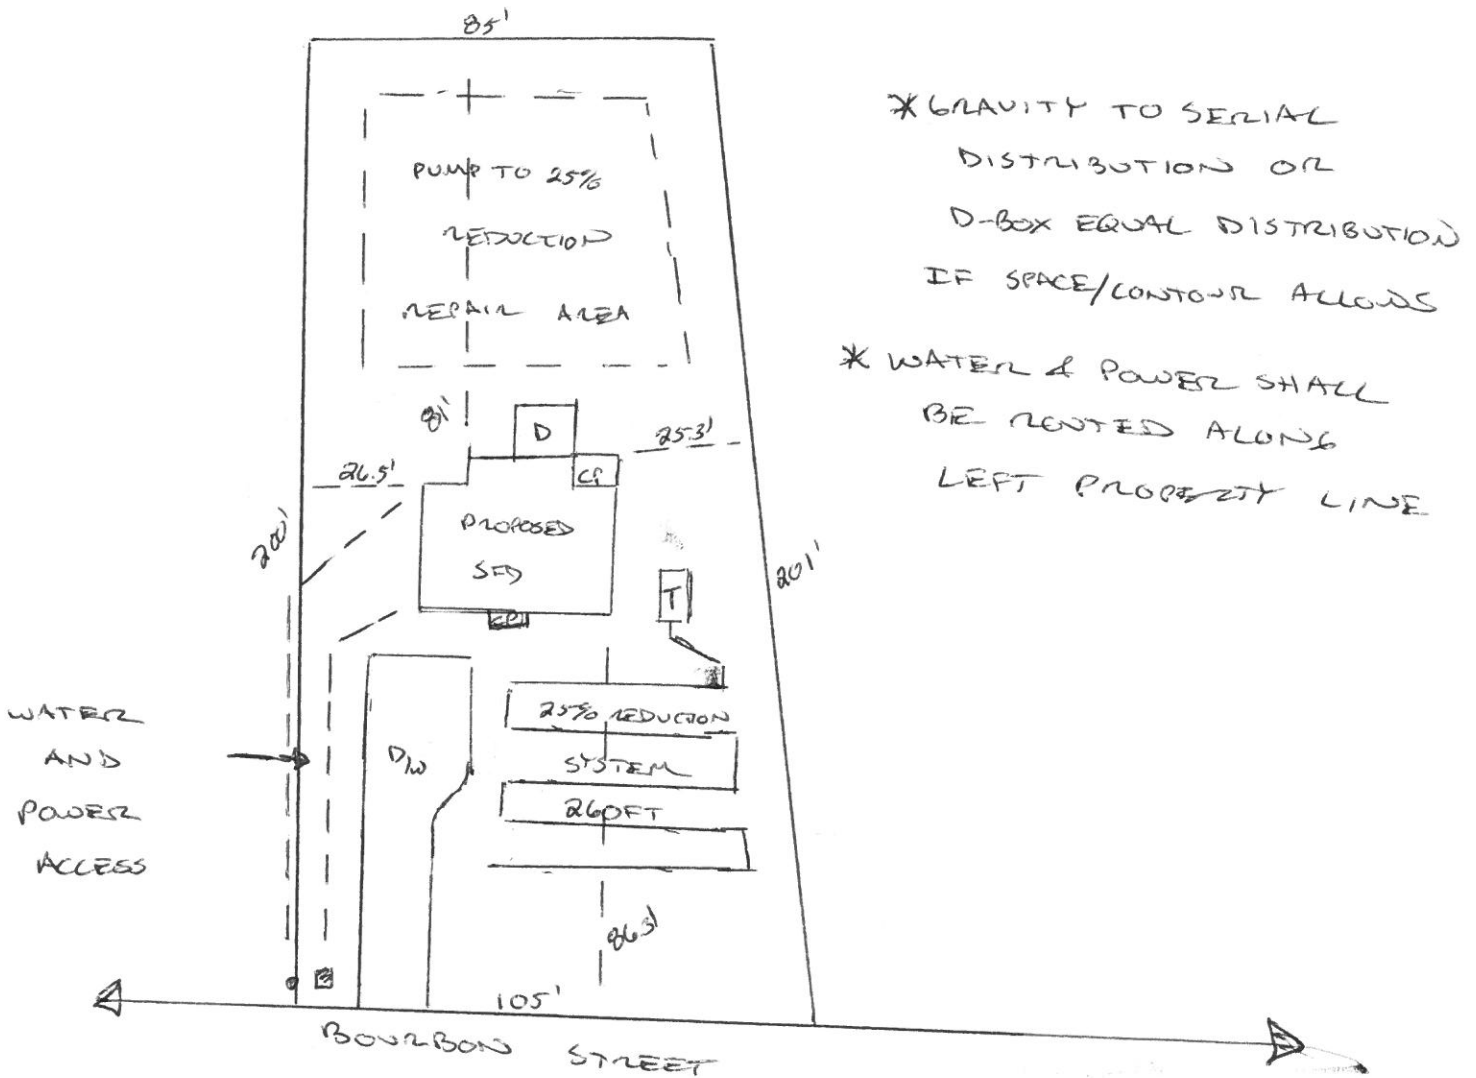 85'
PUMP TO 25%
REDUCTION
REPAIR AREA
81'
D
25.3'
26.5'
CP
PROPOSED
SFD
CP
200'
201'
T
25% REDUCTION
SYSTEM
260FT
D/W
WATER
AND
POWER
ACCESS
86.3'
105'
BOURBON STREET
* GRAVITY TO SERIAL
DISTRIBUTION OR
D-BOX EQUAL DISTRIBUTION
IF SPACE/CONTOUR ALLOWS
* WATER & POWER SHALL
BE ROUTED ALONG
LEFT PROPERTY LINE